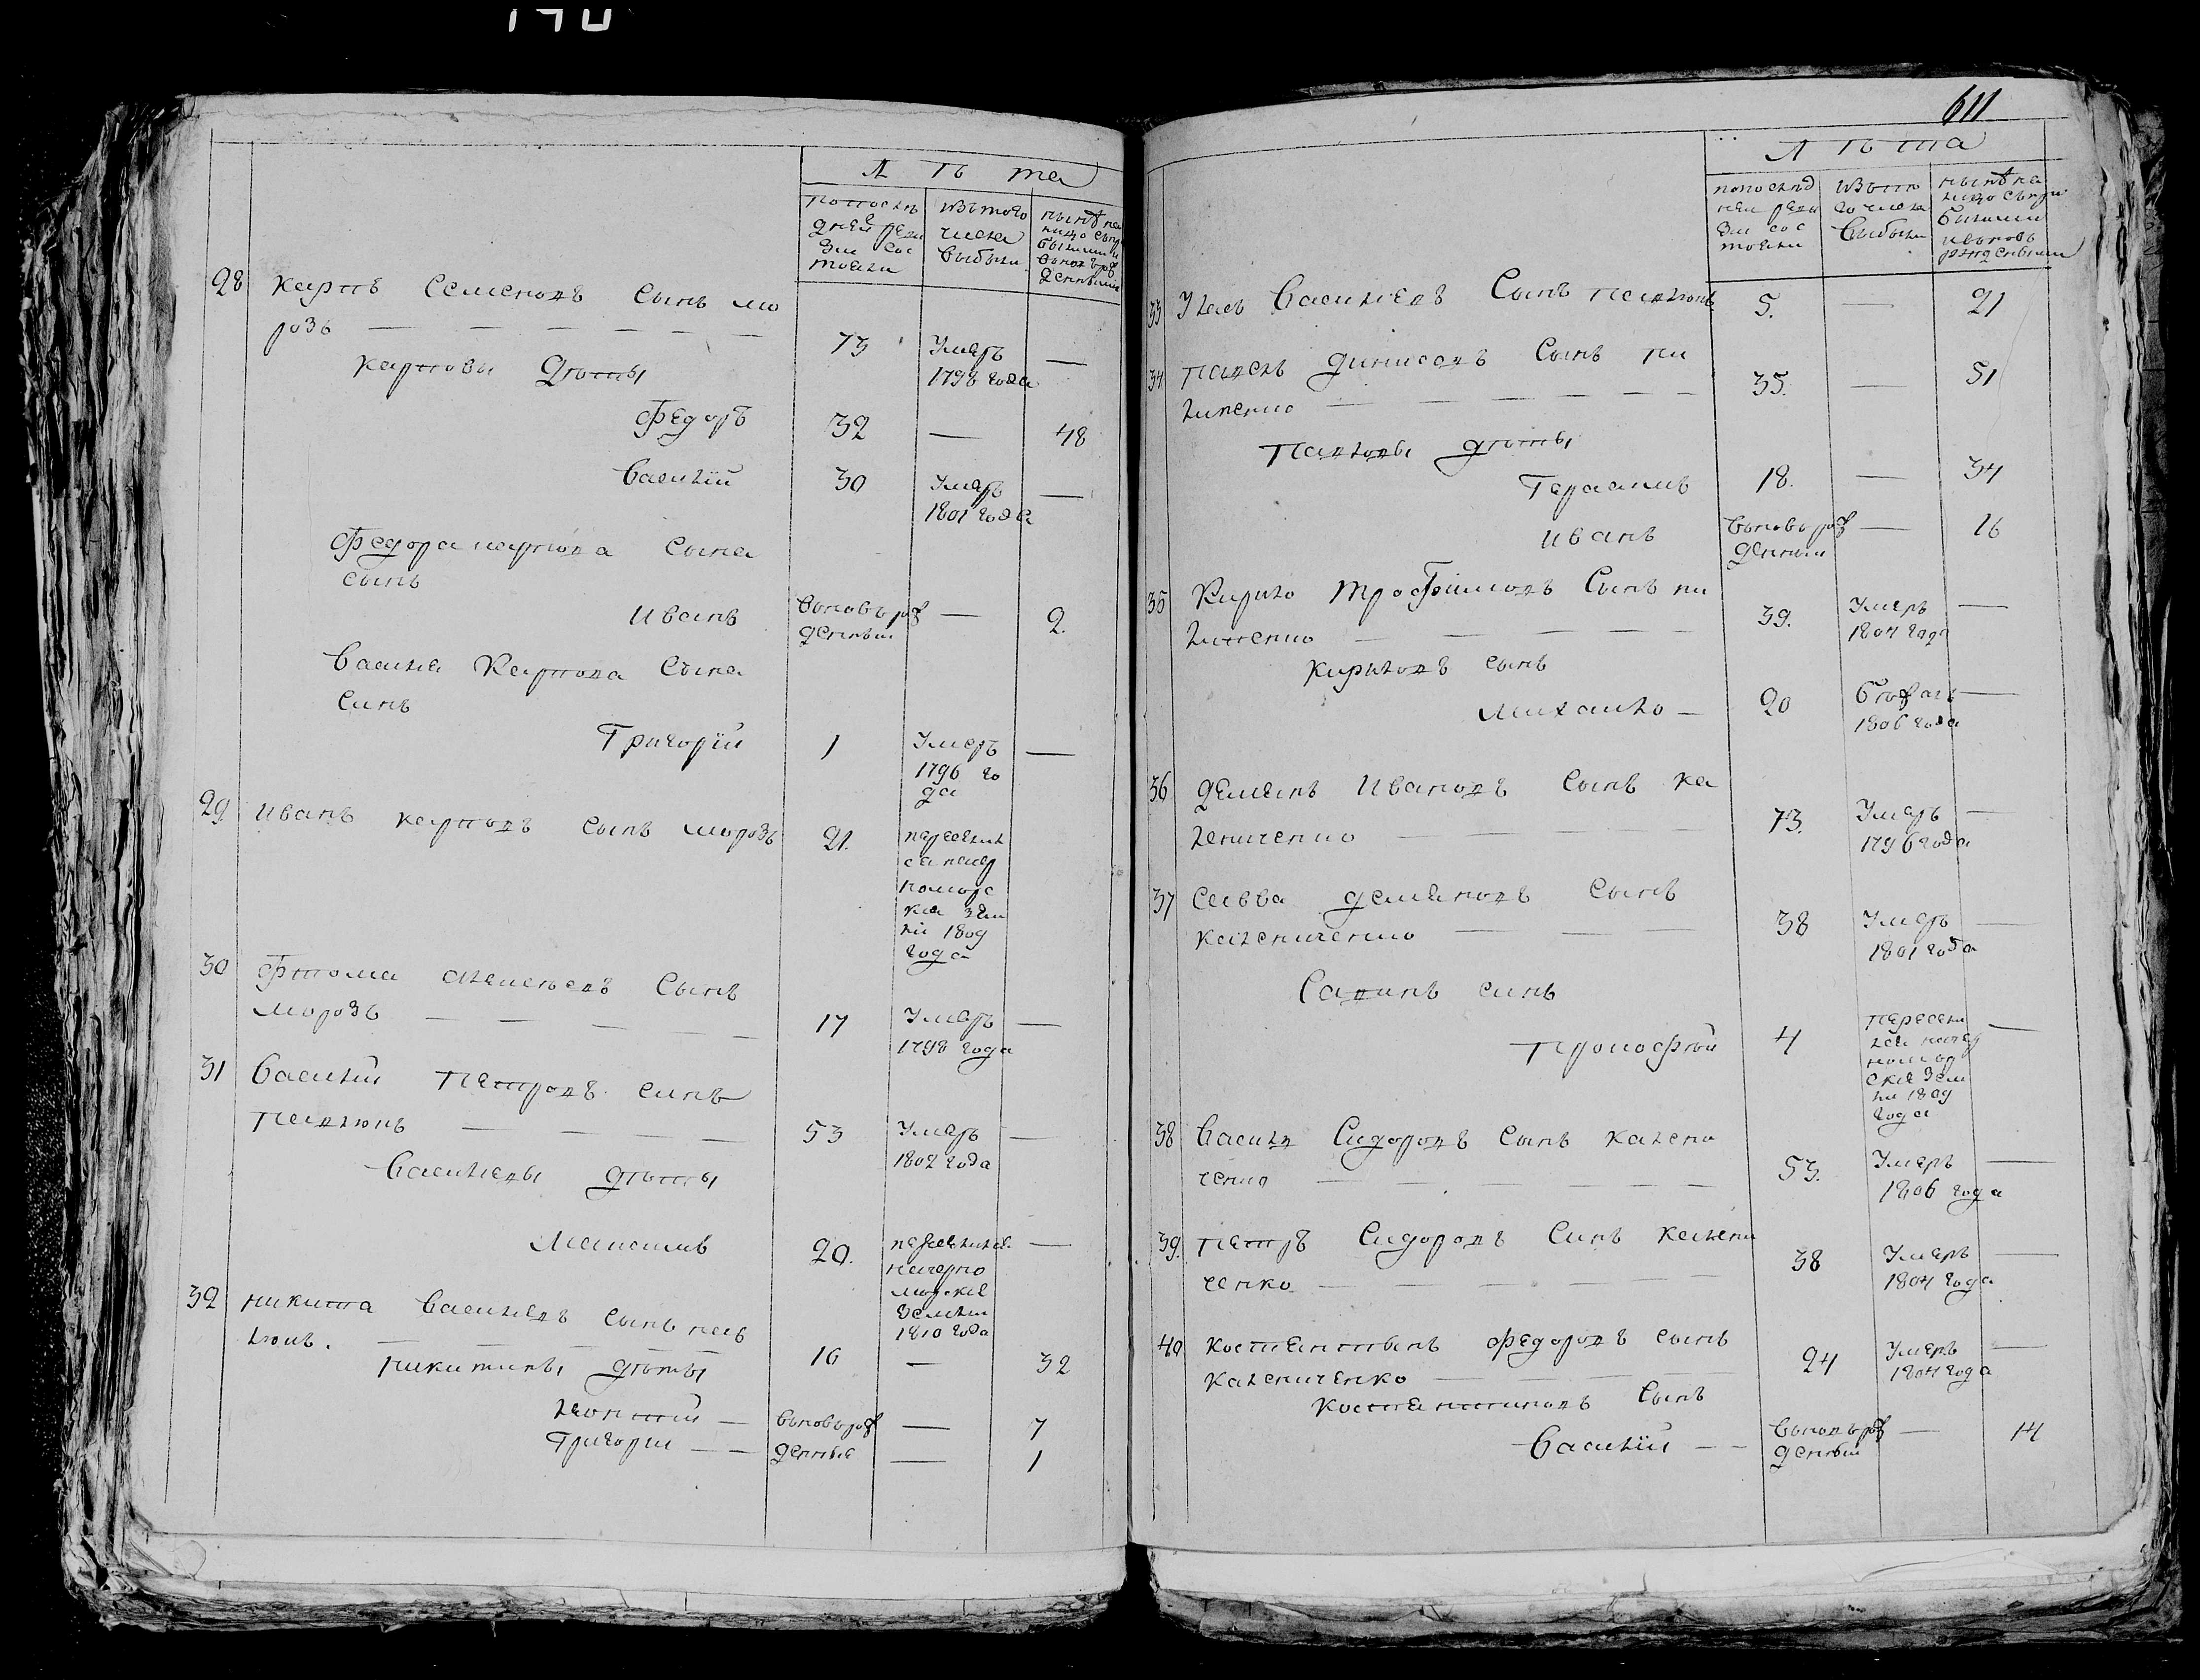 611
Лѣта
по послѣ
дней реви
зіи сос
тояли
изъ того
числа
выбыли
нынѣ на
лицо съ при
былыми и
вновь рож
денными
28 Карпъ Семеновъ Сынъ мо
розъ — — — — — — 73 Умеръ —
1798 года
Карповы Дѣты
Федоръ 32 — 48
Василій 30 Умеръ —
1801 года
Федора карпова Сына
сынъ
Иванъ вновь рож — 2.
денный
Василя Карпова Сына
Сынъ
Григорій 1 Умеръ —
1796 го
да
29 Иванъ карповъ сынъ морозъ 21. пересилил
ся на чер
номорс
кие зем
ли 1809
года
30 Фтома Алексеевъ Сынъ
морозъ — — — — 17 Умеръ —
1798 года
31 Василій Петровъ Синъ
Павлюкъ — — — — 53 Умеръ —
1802 года
Василевы дѣты
Максимъ 20. на черно
морские
земли
1810 года —
32 Никита Василевъ Сынъ пав
люкъ. — — — — 16 — 32
Никитины дѣты
Леонтій — вновь рож — 7
Григорій — — денные — 1
Лѣта
по послѣд
ней реви
зіи сос
тояли
изъ то
го числа
выбыли
нынѣ на
лицо съ при
былыми
и вновь
рожденными
33 Улас Василевъ Сынъ Павлюкъ 5. — 21
34 Павелъ Динисовъ Сынъ пи
липенко — — — — — — 35. — 51
Павловы дѣты
Герасимъ 18. — 34
Иванъ вновь рож — 16
денный
35 Кирило Трофимовъ Сынъ пи
липенко — — — — 39. Умеръ —
1804 года
Кириловъ сынъ
Михайло — 20 бѣжалъ —
1806 года
36 Демянъ Ивановъ Сынъ ка
лениченко — — — — 73. Умеръ —
1796 года
37 Савва Демяновъ Сынъ
калениченко — — — 38 Умеръ —
1801 года
Савинъ синъ
Прокофій 4 —
ские зем
ли 1809
года
38 Василь Сидоровъ Сынъ калени
ченко — — — — — — 53. Умеръ —
1806 года
39. Петръ Сидоровъ Синъ калени
ченко — — — — — 38 Умеръ —
1804 года
40 Костентинъ Федоровъ Сынъ
Калениченко — — — 24 Умеръ —
1804 года
Костентиновъ Сынъ
Василій — — вновь рож — 14
денный